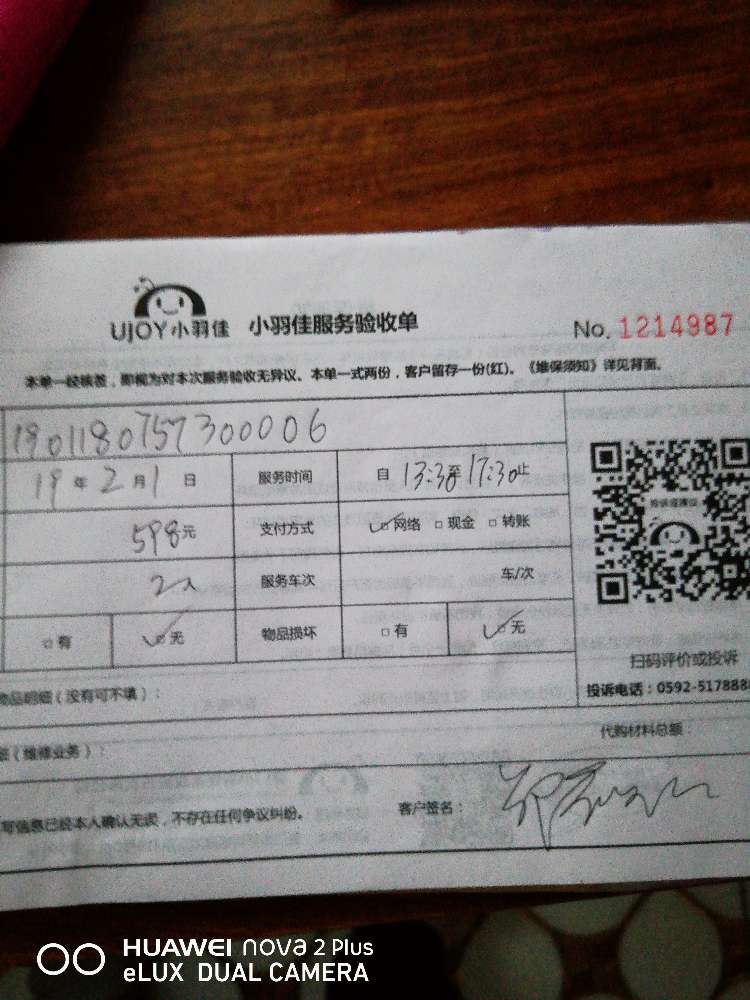 UJOY小羽佳 小羽佳服务验收单 No. 1214987
本单一经核签，即视为对本次服务验收无异议。本单一式两份，客户留存一份(红)。《维保须知》详见背面。
1901180757300006
19年2月1日 服务时间 自13:30至17:30止
598元 支付方式 网络 现金 转账
2人 服务车次 车/次
有 无 物品损坏 有 无
扫码评价或投诉
物品明细（没有可不填）：
投诉电话：0592-5178888
（维修业务）：
代购材料总额：
信息已经本人确认无误，不存在任何争议纠纷。 客户签名：
HUAWEI nova 2 Plus
eLUX DUAL CAMERA